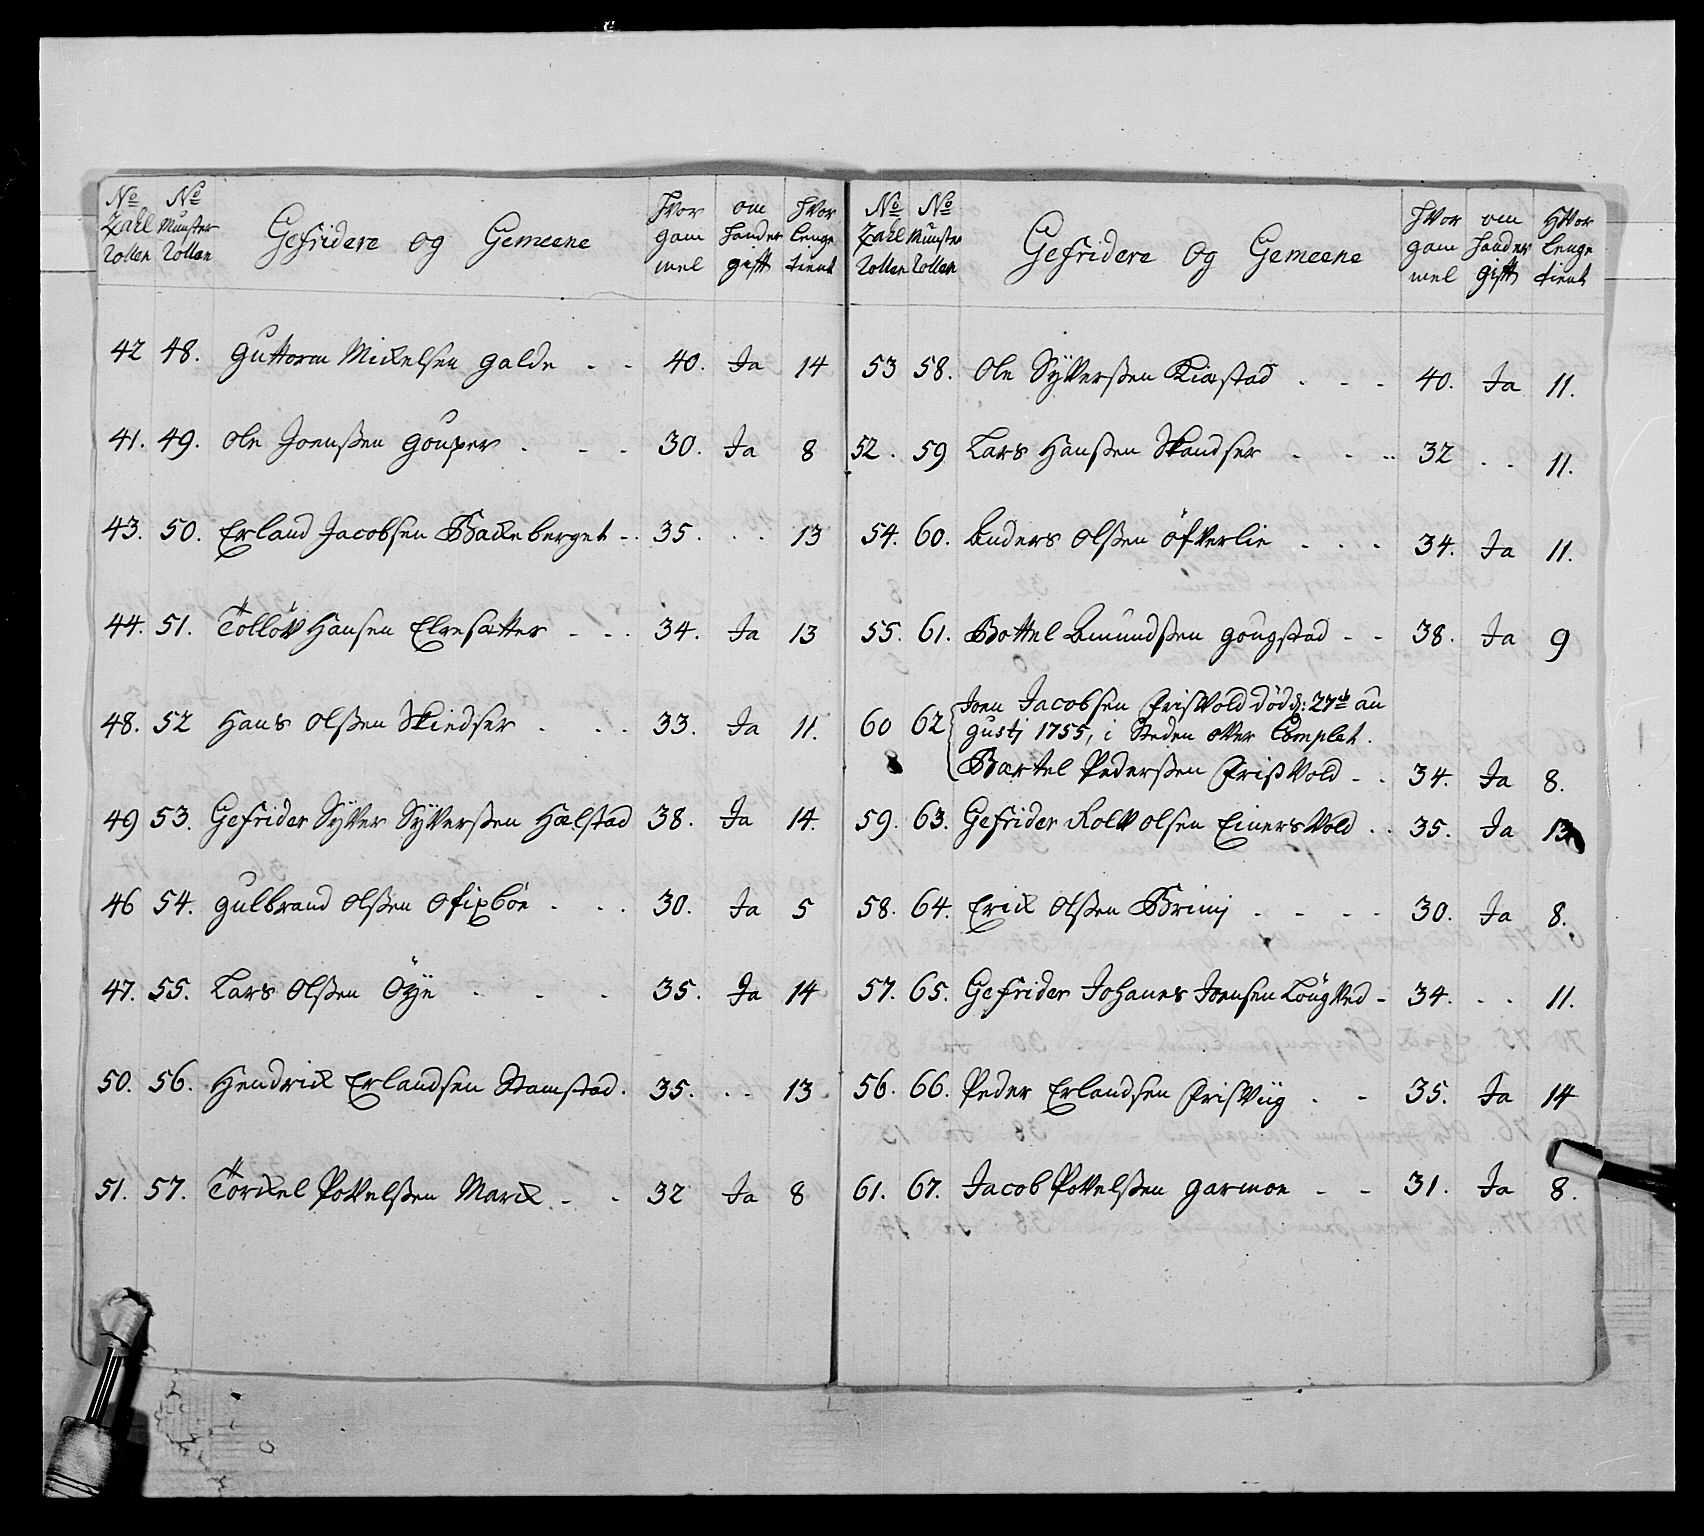 No Zahl Rollen | No Munster Rollen | Gefridere og Gemeene | Hvor gam mel | om hand er gift | Hvor lenge tient
42 48. Guttorm Mickelsen Galde - - 40. Ja 14
41. 49. Ole Joenssen Gouper . - - 30. Ja 8
43. 50. Erland Jacobsen Backeberget - . 35. . . 13
44. 51. Tollöv Hansen Elvesætter - - . 34. Ja 13
48. 52 Hans Olssen Skiedser . . . 33. Ja 11.
49 53. Gefrider Syver Syverssen Hælstad 38. Ja 14.
46 54. Gulbrand Olssen Ofixböe . . . 30. Ja 5
47. 55. Lars Olssen Öÿe - - . 35. Ja 14
50. 56. Hendrick Erlandsen Stamstad . 35. . . 13
51. 57. Torckel Povelssen Marck . - - 32 Ja 8
No Zahl Rollen | No Munster Rollen | Gefridere og Gemeene | Hvor gam mel | om hand er gift | Hvor lenge tient
53 58. Ole Syverssen Kiæstad . - - 40. Ja 11.
52. 59 Lars Hanssen Skandser . - - 32 . . 11.
54. 60. Anders Olssen Öfverlie . . . 34. Ja 11.
55. 61. Bottel Amundssen Gougstad - - 38. Ja 9
60 62 Joen Jacobsen Frisvold död d: 27de au
gustj 1755, i Steden over Complet.
Bartel Pederssen Frisvold - . 34. Ja 8.
59. 63. Gefrider Rolv Olsen Einersvold . . 35. Ja 13
58. 64. Erick Olssen Brimj . - - - 30. Ja 8.
57. 65. Gefrider Johanes Joensen Löngved - 34. . . 11.
56. 66. Peder Erlandsen Frisviig . - 35. Ja 14
61. 67. Jacob Povelssen Garmoe - - 31. Ja 8.